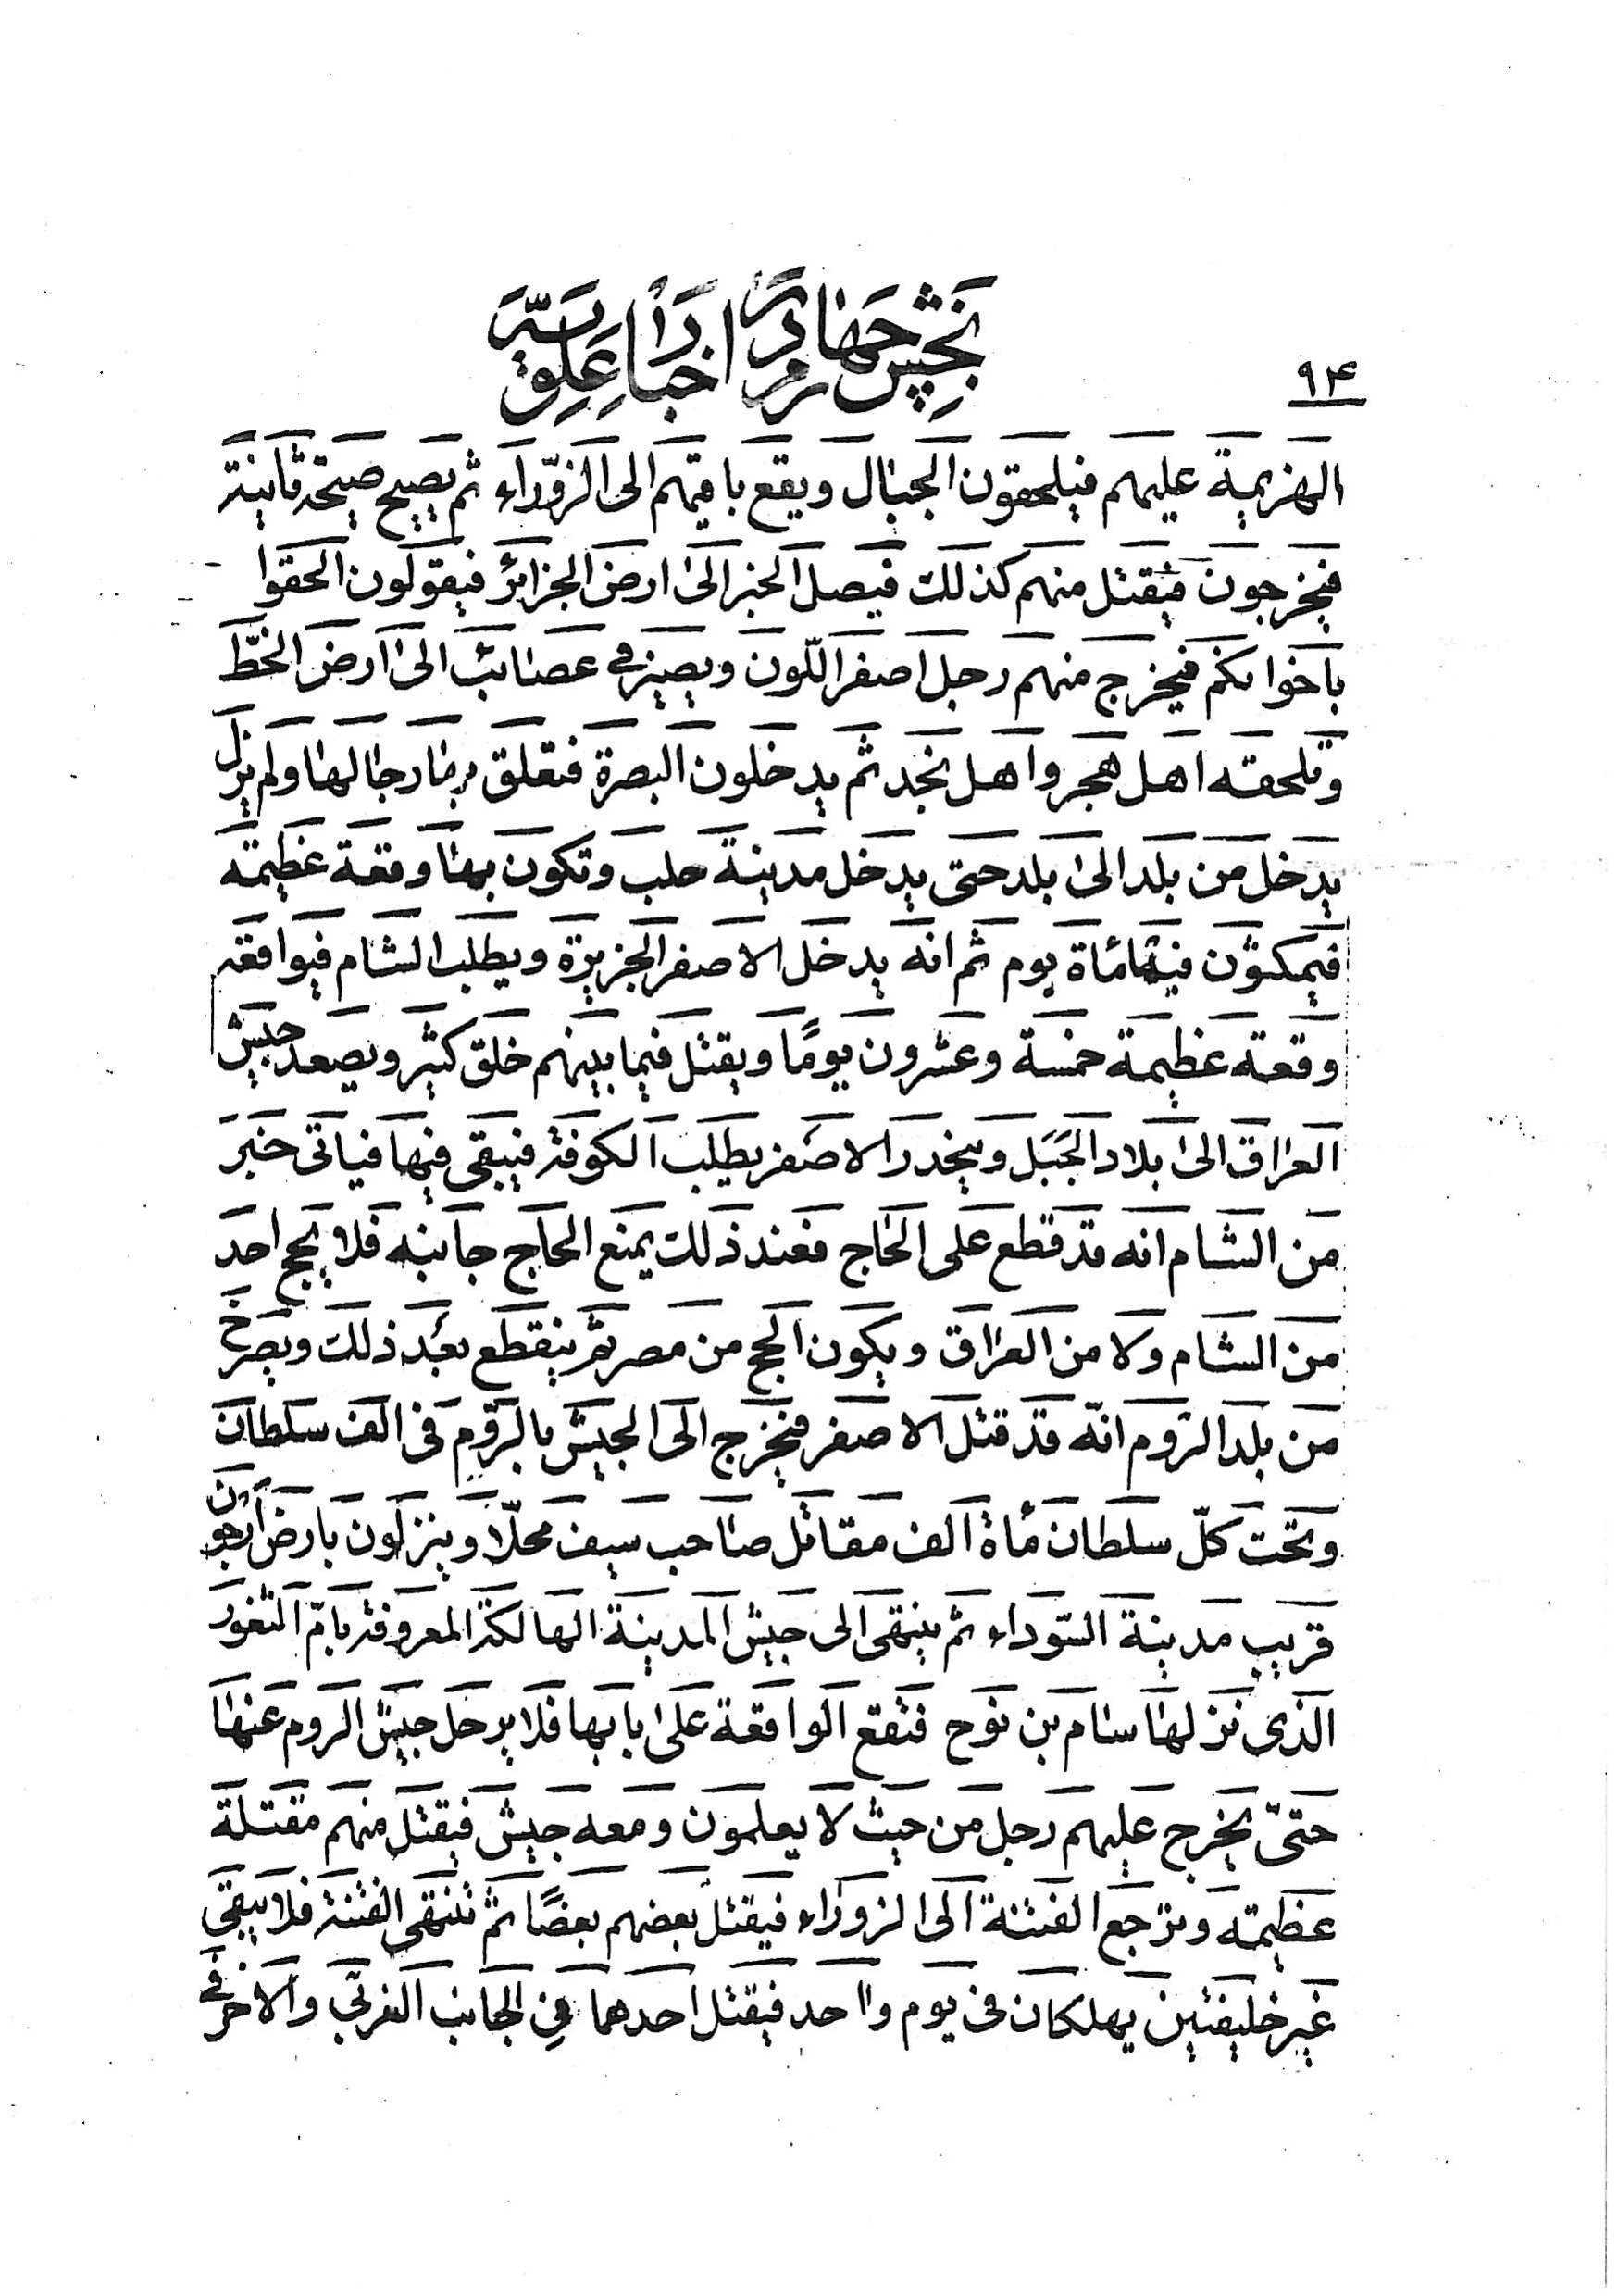 بخش چهارم در اخبار علویه
۹۴
الهزيمة عليهم فيلحقون الجبال ويقع باقيهم الى الزوّراء ثم يصيح صيحة ثانية
فيخرجون فيقتل منهم كذلك فيصل الخبر الى ارض الجزائر فيقولون الحقوا
باخوانكم فيخرج منهم رجل اصفر اللّون ويصير فى عصائب الى ارض الخطّ
وتلحقه اهل هجر واهل نجد ثم يدخلون البصرة فتعلق بها رجالها ولم يزل
يدخل من بلد الى بلد حتى يدخل مدينة حلب وتكون بها وقعة عظيمة
فيمكثون فيها مأة يوم ثم انه يدخل الاصفر الجزيرة ويطلب الشام فيواقعه
وقعة عظيمة خمسة وعشرون يومًا ويقتل فيما بينهم خلق كثير ويصعد جيش
العراق الى بلاد الجَبَل وينحدر الاصفر يطلب الكوفة فيبقى فيها فياتى خبر
من الشام انه قد قطع على الحاج فعند ذلك يمنع الحاج جانبه فلا يحج احد
من الشام ولا من العراق ويكون الحج من مصر ثم ينقطع بعد ذلك ويصرخ
من بلد الروم انّه قد قتل الاصفر فيخرج الى الجيش بالرّوم فى الف سلطان
وتحت كلّ سلطان مأة الف مقاتل صاحب سيف محلّا وينزلون بارض ارجون
قريب مدينة السّوداء ثم ينتهى الى جيش المدينة الهالكة المعروفة بامّ الثغور
الذى نزلها سام بن نوح فتقع الواقعة على بابها فلا يرحل جيش الروم عنها
حتىّ يخرج عليهم رجل من حيث لا يعلمون ومعه جيش فيقتل منهم مقتلة
عظيمة وترجع الفتنة الى الزوراء فيقتل بعضهم بعضًا ثم تنتهى الفتنة فلا يبقى
غير خليفتين يهلكان فى يوم واحد فيقتل احدهما فى الجانب الغربّي والاخر فى